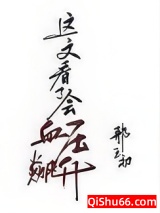 这文看了会
血压
飚升
邢三初
QiShu66.com